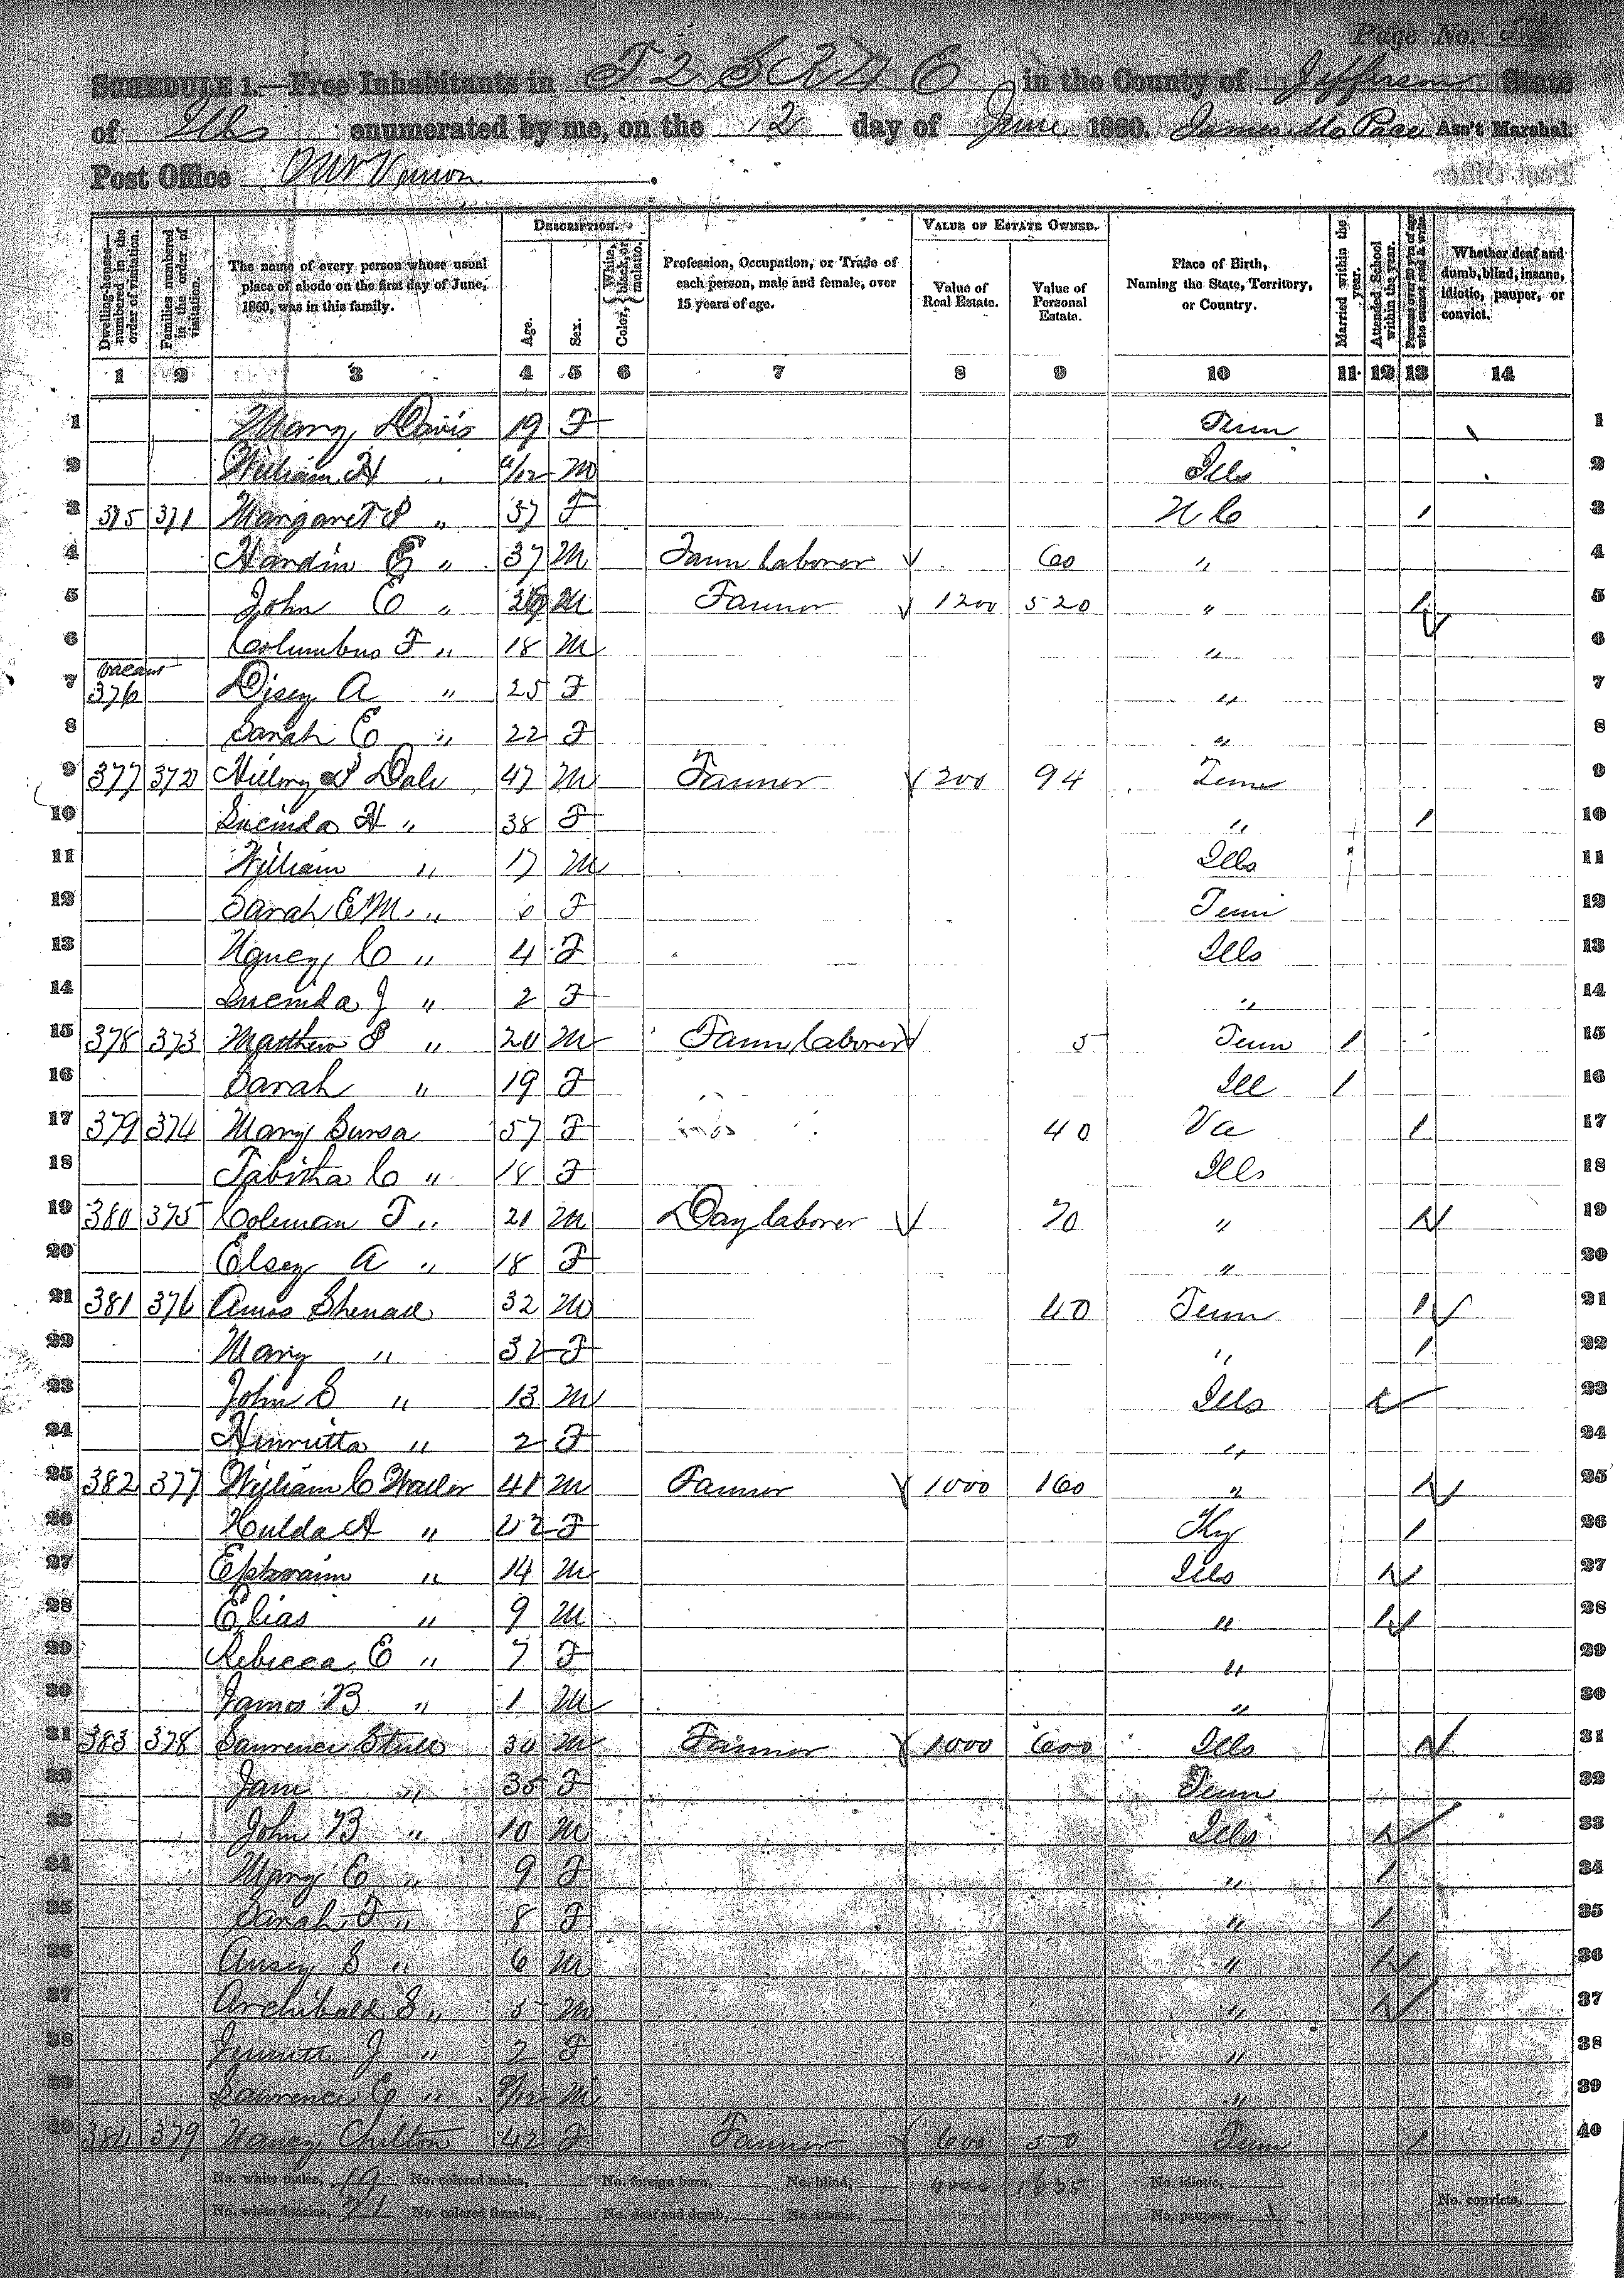 Page No. 54
SCHEDULE 1.—Free Inhabitants in T 2 S R 4 E in the County of Jefferson State
of Ills enumerated by me, on the 12 day of June 1860. James M Pace Ass't Marshal.
Post Office Mt Vernon.
Dwelling-houses—numbered in the order of visitation. Families numbered in the order of visitation. The name of every person whose usual place of abode on the first day of June, 1860, was in this family. DESCRIPTION. Age. Sex. Color, { White, black, or mulatto. Profession, Occupation, or Trade of each person, male and female, over 15 years of age. VALUE OF ESTATE OWNED. Value of Real Estate. Value of Personal Estate. Place of Birth, Naming the State, Territory, or Country. Married within the year. Attended School within the year. Persons over 20 y'rs of age who cannot read & write. Whether deaf and dumb, blind, insane, idiotic, pauper, or convict.
1 2 3 4 5 6 7 8 9 10 11 12 13 14
1 Mary Davis 19 F Tenn 1
2 William H " /12 M Ills 2
3 375 371 Margaret " 57 F N C / 3
4 Hardin E " 37 M Farm laborer 60 " 4
5 John E " M Farmer 1200 520 " / 5
6 Columbus F " 18 M " 6
vacant
7 376 Disey A " 25 F " 7
8 Sarah E " 22 F " 8
9 377 372 Dale 47 M Farmer 200 94 Tenn 9
10 Lucinda H " 38 F " / 10
11 William " 17 M Ills 11
12 Sarah E M. " F Tenn 12
13 Nancy C " 4 F Ills 13
14 Lucinda J " 2 F " 14
15 378 373 Matthew " 20 M Farm laborer 5 Tenn / 15
16 Sarah " 19 F Ill / 16
17 379 374 Mary 57 F 40 Va / 17
18 Tabitha C " 18 F Ills 18
19 380 375 Coleman T " 21 M Day laborer 70 " / 19
20 Elsey A " 18 F " 20
21 381 376 Amos 32 M 40 Tenn / 21
22 Mary " 32 F " / 22
23 John S " 13 M Ills / 23
24 Henrietta " 2 F " 24
25 382 377 William C Waller 41 M Farmer 1000 160 " / 25
26 Hulda A " F Ky / 26
27 Ephraim " 14 M Ills / 27
28 Elias " 9 M " / 28
29 Rebecca E " 7 F " 29
30 James B " 1 M " 30
31 383 378 Laurence 30 M Farmer 1000 600 Ills / 31
32 Jane " 35 F Tenn 32
33 John B " 10 M Ills / 33
34 Mary E " 9 F " / 34
35 Sarah F " 8 F " / 35
36 S " 6 M " / 36
37 Archibald S " 5 M " / 37
38 J " 2 F " 38
39 Laurence C " 9/12 M " 39
40 384 379 Nancy Chilton 42 F Farmer 600 50 Tenn / 40
No. white males, 19 No. colored males, No. foreign born, No. blind, 4000 1635 No. idiotic,
No. white females, 21 No. colored females, No. deaf and dumb, No. insane, No. paupers, No. convicts,